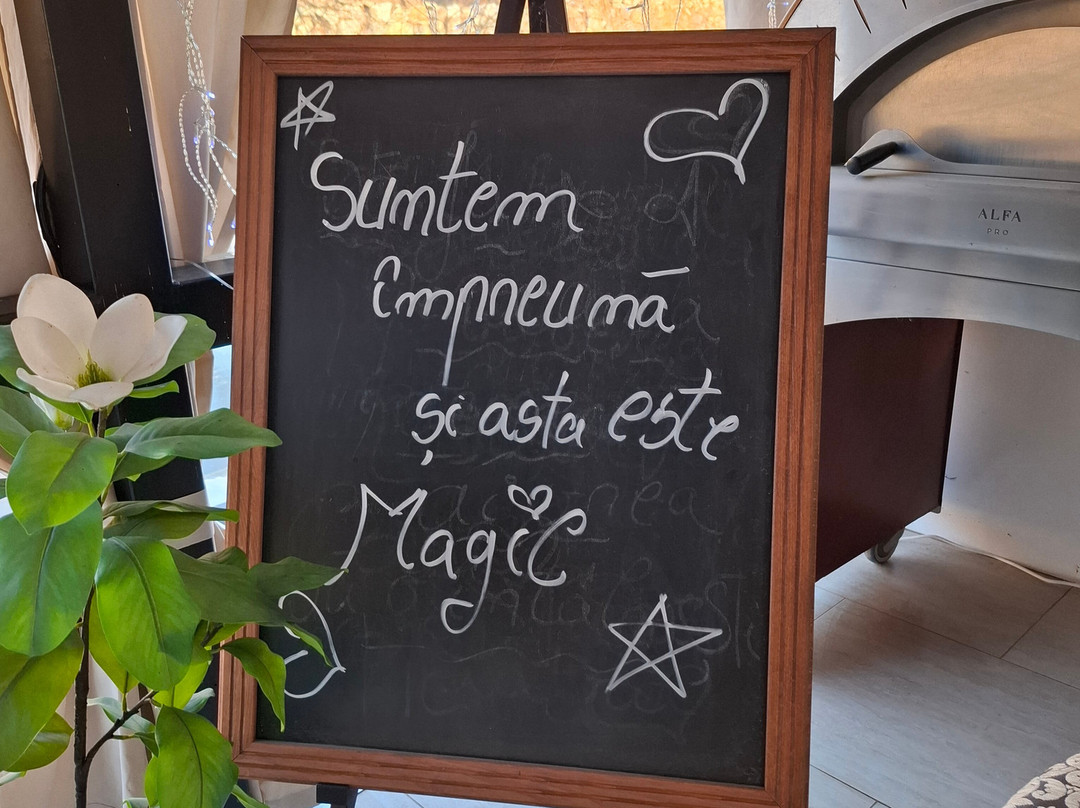 Suntem
împreună
și asta este
Magic
ALFA
PRO